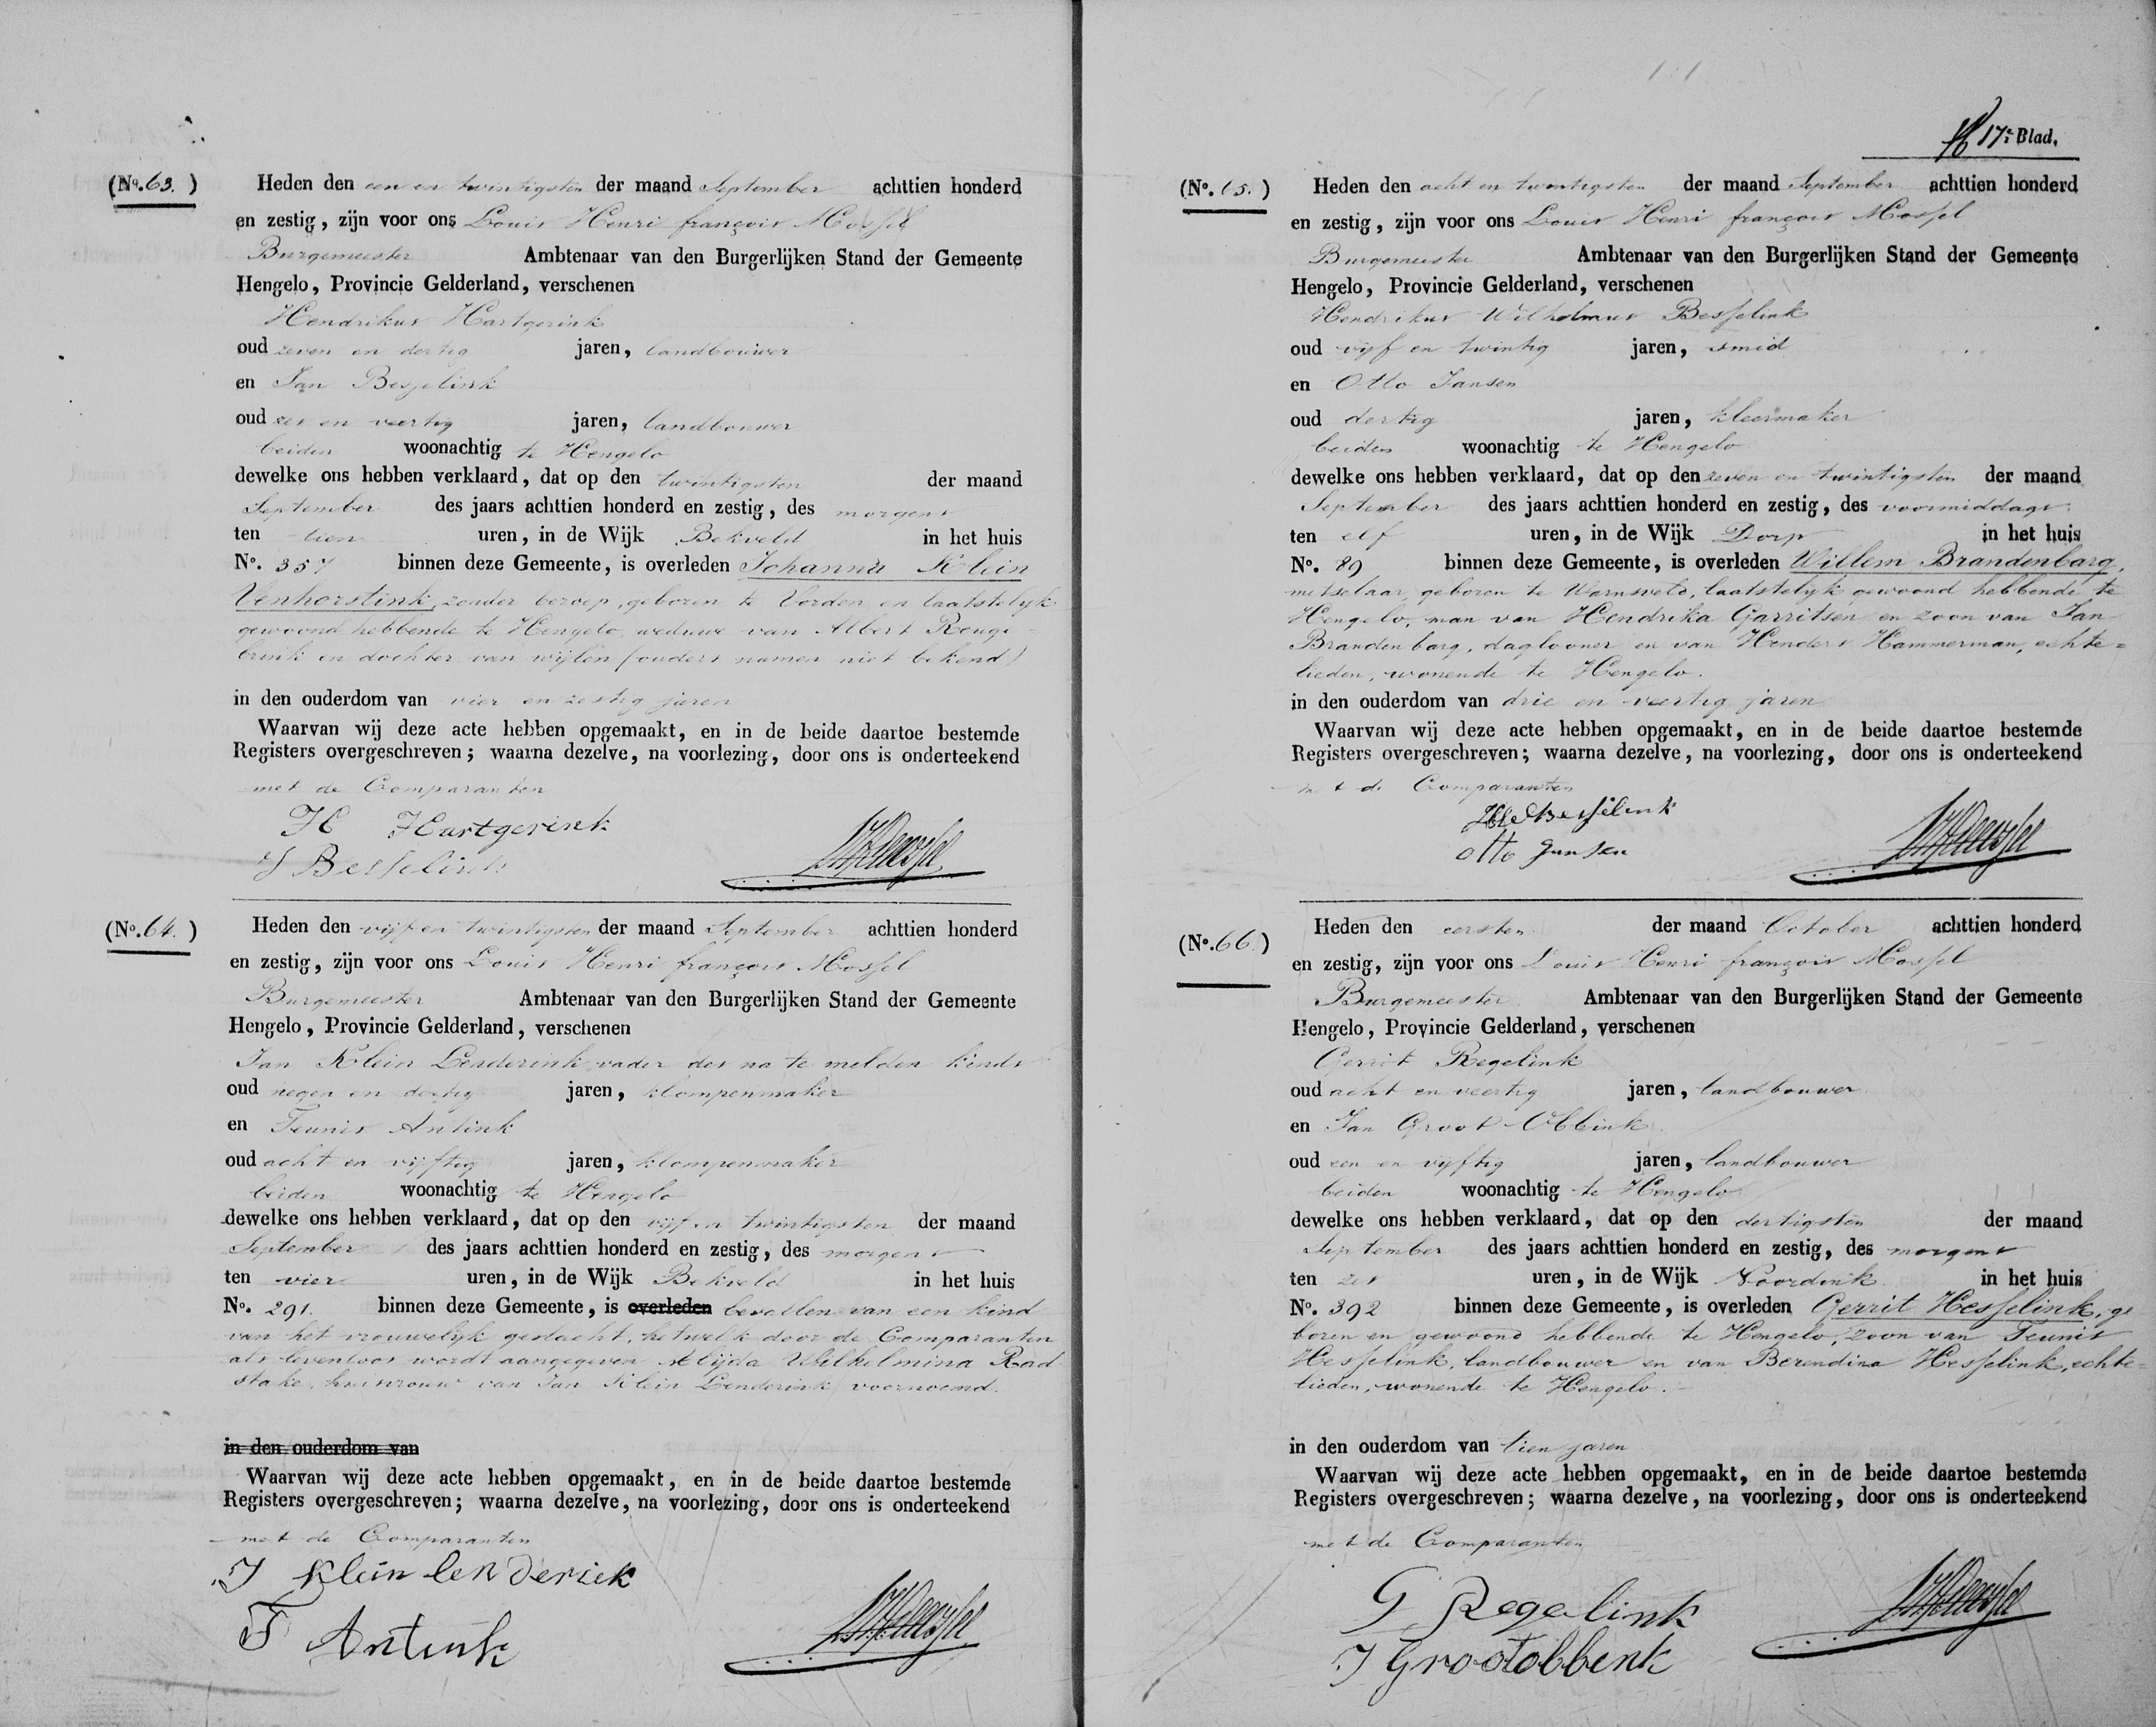 (No. 63.)
Heden den een en twintigsten der maand September achttien honderd
en zestig, zijn voor ons Louis Henri françois Mossel
Burgemeester Ambtenaar van den Burgerlijken Stand der Gemeente
Hengelo, Provincie Gelderland, verschenen
Hendrikus Hartgerink
oud zeven en dertig jaren, landbouwer
en Jan Besselink
oud zes en veertig jaren, landbouwer
beiden woonachtig te Hengelo
dewelke ons hebben verklaard, dat op den twintigsten der maand
September des jaars achttien honderd en zestig, des morgens
ten tien uren, in de Wijk Bekveld in het huis
No. 357 binnen deze Gemeente, is overleden Johanna Klein
Venhorstink, zonder beroep, geboren te Vorden en laatstelyk
gewoond hebbende te Hengelo, weduwe van Albert Reuge
brink en dochter van wijlen (ouders namen niet bekend)
in den ouderdom van vier en zestig jaren
Waarvan wij deze acte hebben opgemaakt, en in de beide daartoe bestemde
Registers overgeschreven; waarna dezelve, na voorlezing, door ons is onderteekend
met de Comparanten
H Hartgerink
J Besselink
(No. 64.)
Heden den vijf en twintigsten der maand September achttien honderd
en zestig, zijn voor ons Louis Henri françois Mossel
Burgemeester Ambtenaar van den Burgerlijken Stand der Gemeente
Hengelo, Provincie Gelderland, verschenen
Jan Klein Lenderink, vader des na te melden kinds
oud negen en dertig jaren, klompenmaker
en Teunis Antink
oud acht en vijftig jaren, klompenmaker
beiden woonachtig te Hengelo
dewelke ons hebben verklaard, dat op den vijf en twintigsten der maand
September des jaars achttien honderd en zestig, des morgens
ten vier uren, in de Wijk Bekveld in het huis
No. 291. binnen deze Gemeente, is overleden bevallen van een kind
van het vrouwelyk geslacht, hetwelk door de Comparanten
als levenloos wordt aangegeven Alijda Wilhelmina Rad
stake, huisvrouw van Jan Klein Lenderink voornoemd.
in den ouderdom van
Waarvan wij deze acte hebben opgemaakt, en in de beide daartoe bestemde
Registers overgeschreven; waarna dezelve, na voorlezing, door ons is onderteekend
met de Comparanten
J Klein lenderink
T Antink
17e Blad.
(No. 65.)
Heden den acht en twintigsten der maand September achttien honderd
en zestig, zijn voor ons Louis Henri françois Mossel
Burgemeester Ambtenaar van den Burgerlijken Stand der Gemeente
Hengelo, Provincie Gelderland, verschenen
Hendrikus Wilhelmus Besselink
oud vijf en twintig jaren, smid
en Otto Jansen
oud dertig jaren, kleermaker
beiden woonachtig te Hengelo
dewelke ons hebben verklaard, dat op den zeven en twintigsten der maand
September des jaars achttien honderd en zestig, des voormiddags
ten elf uren, in de Wijk Dorp in het huis
No. 89 binnen deze Gemeente, is overleden Willem Brandenbarg,
metselaar, geboren te Warnsveld, laatstelyk gewoond hebbende te
Hengelo, man van Hendrika Garritsen en zoon van Jan
Brandenbarg, daglooner en van Henders Hammerman, echte=
lieden, wonende te Hengelo.
in den ouderdom van drie en veertig jaren
Waarvan wij deze acte hebben opgemaakt, en in de beide daartoe bestemde
Registers overgeschreven; waarna dezelve, na voorlezing, door ons is onderteekend
met de Comparanten
HW Besselink
Otto Jansen
(No. 66.)
Heden den eersten der maand October achttien honderd
en zestig, zijn voor ons Louis Henri françois Mossel
Burgemeester Ambtenaar van den Burgerlijken Stand der Gemeente
Hengelo, Provincie Gelderland, verschenen
Gerrit Regelink
oud acht en veertig jaren, landbouwer
en Jan Groot Obbink
oud een en vijftig jaren, landbouwer
beiden woonachtig te Hengelo
dewelke ons hebben verklaard, dat op den dertigsten der maand
September des jaars achttien honderd en zestig, des morgens
ten zes uren, in de Wijk Noordink in het huis
No. 392 binnen deze Gemeente, is overleden Gerrit Hesselink, ge
boren en gewoond hebbende te Hengelo, zoon van Teunis
Hesselink, landbouwer en van Berendina Hesselink, echte=
lieden, wonende te Hengelo.
in den ouderdom van tien jaren
Waarvan wij deze acte hebben opgemaakt, en in de beide daartoe bestemde
Registers overgeschreven; waarna dezelve, na voorlezing, door ons is onderteekend
met de Comparanten
G Regelink
J Grootobbenk